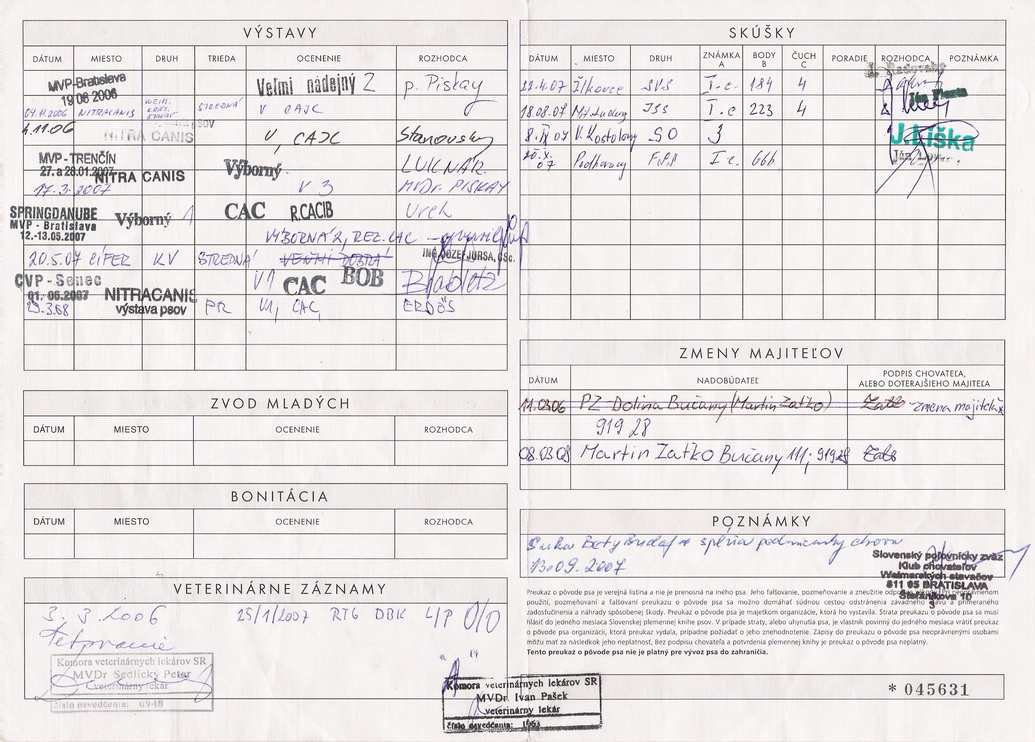 VÝSTAVY
DÁTUM MIESTO DRUH TRIEDA OCENENIE ROZHODCA
MVP-Bratislava
19 06 2006 Veľmi nádejný 2 p. Piskay
04.11.2006 NITRACANIS STREDNÁ V CAJC
4.11.06 NITRA CANIS V, CAJC Stanovsky
MVP - TRENČÍN
27. a 28.01.2007 Výborný LUKNÁR
17.3.2007 NITRA CANIS V 3 MVDr. PISKAY
SPRINGDANUBE
MVP - Bratislava Výborný 1 CAC R.CACIB Urek
12.-13.05.2007
VÝBORNÁ 2, REZ. CAC
20.5.07 CÍFER KV STREDNÁ VEĽMI DOBRÁ ING. JOZEF JURSA, CSc.
CVP - Senec V1 CAC BOB
01. 06.2007 NITRACANIS
29.3.08 výstava psov PR V1, CAC, ERDÖS
ZVOD MLADÝCH
DÁTUM MIESTO OCENENIE ROZHODCA
BONITÁCIA
DÁTUM MIESTO OCENENIE ROZHODCA
VETERINÁRNE ZÁZNAMY
3. 3. 2006 25/1/2007 RTG DBK L/P 0/0
Tetovanie
Komora veterinárnych lekárov SR
MVDr Sedlický Peter
veterinárny lekár
číslo osvedčenia: 0948
"A"
Komora veterinárnych lekárov SR
MVDr. Ivan Pašek
veterinárny lekár
číslo osvedčenia: 1963
SKÚŠKY
DÁTUM MIESTO DRUH ZNÁMKA A BODY B ČUCH C PORADIE ROZHODCA POZNÁMKA
22.4.07 Žlkovce SVS I.c. 184 4
18.08.07 JSS I.c 223 4
8.IX 07 V. Kostoľany SO 3 J.Liška
20.X.07 F.S.P I.c. 666 Ján
ZMENY MAJITEĽOV
DÁTUM NADOBÚDATEĽ PODPIS CHOVATEĽA,
ALEBO DOTERAJŠIEHO MAJITEĽA
11.03.06 PZ-Dolina Bučany (Martin Zaťko) - zmena majiteľa
919 28
08.03.08 Martin Zaťko Bučany 111; 91928
POZNÁMKY
Suka Bety Budaf spĺňa podmienky chovu
13.09.2007
Slovenský poľovnícky zväz
Klub chovateľov
Weimarských stavačov
811 05 BRATISLAVA
Štefánikova 10
3
Preukaz o pôvode psa je verejná listina a nie je prenosná na iného psa. Jeho falšovanie, pozmeňovanie a zneužitie odporuje zákonu. Pri neoprávnenom
použití, pozmeňovaní a falšovaní preukazu o pôvode psa sa možno domáhať súdnou cestou odstránenia závadného stavu a primeraného
zadosťučinenia a náhrady spôsobenej škody. Preukaz o pôvode psa je majetkom organizácie, ktorá ho vystavila. Strata preukazu o pôvode psa sa musí
hlásiť do jedného mesiaca Slovenskej plemennej knihe psov. V prípade straty, alebo uhynutia psa, je vlastník povinný do jedného mesiaca vrátiť preukaz
o pôvode psa organizácii, ktorá preukaz vydala, prípadne požiadať o jeho znehodnotenie. Zápisy do preukazu o pôvode psa neoprávnenými osobami
môžu mať za následok jeho neplatnosť. Bez podpisu chovateľa a potvrdenia plemennej knihy je preukaz o pôvode psa neplatný.
Tento preukaz o pôvode psa nie je platný pre vývoz psa do zahraničia.
* 045631